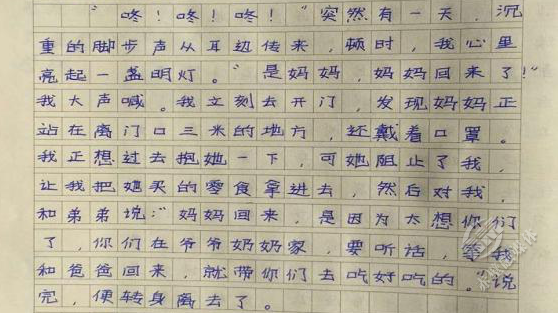 “咚！咚！咚！”突然有一天，沉
重的脚步声从耳边传来，顿时，我心里
亮起一盏明灯。“是妈妈，妈妈回来了！”
我大声喊。我立刻去开门，发现妈妈正
站在离门口三米的地方，还戴着口罩。
我正想过去抱她一下，可她阻止了我，
让我把她买的零食拿进去，然后对我，
和弟弟说：“妈妈回来，是因为太想你们
了，你们在爷爷奶奶家，要听话，等我
和爸爸回来，就带你们去吃好吃的。”说
完，便转身离去了。